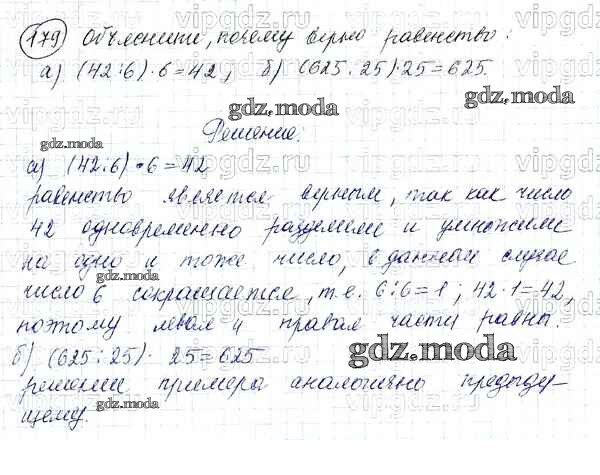 179 Объясните, почему верно равенство:
а) (42:6)·6=42, б) (625:25)·25=625.
gdz.moda
Решение:
а) (42:6)·6=42
равенство является верным, так как число
42 одновременно разделили и умножили
на одно и тоже число, в данный случае
число 6 сокращается, т.е. 6:6=1; 42·1=42,
поэтому левая и правая части равны.
б) (625:25)· 25=625
решении примера аналогично предыду-
щему.